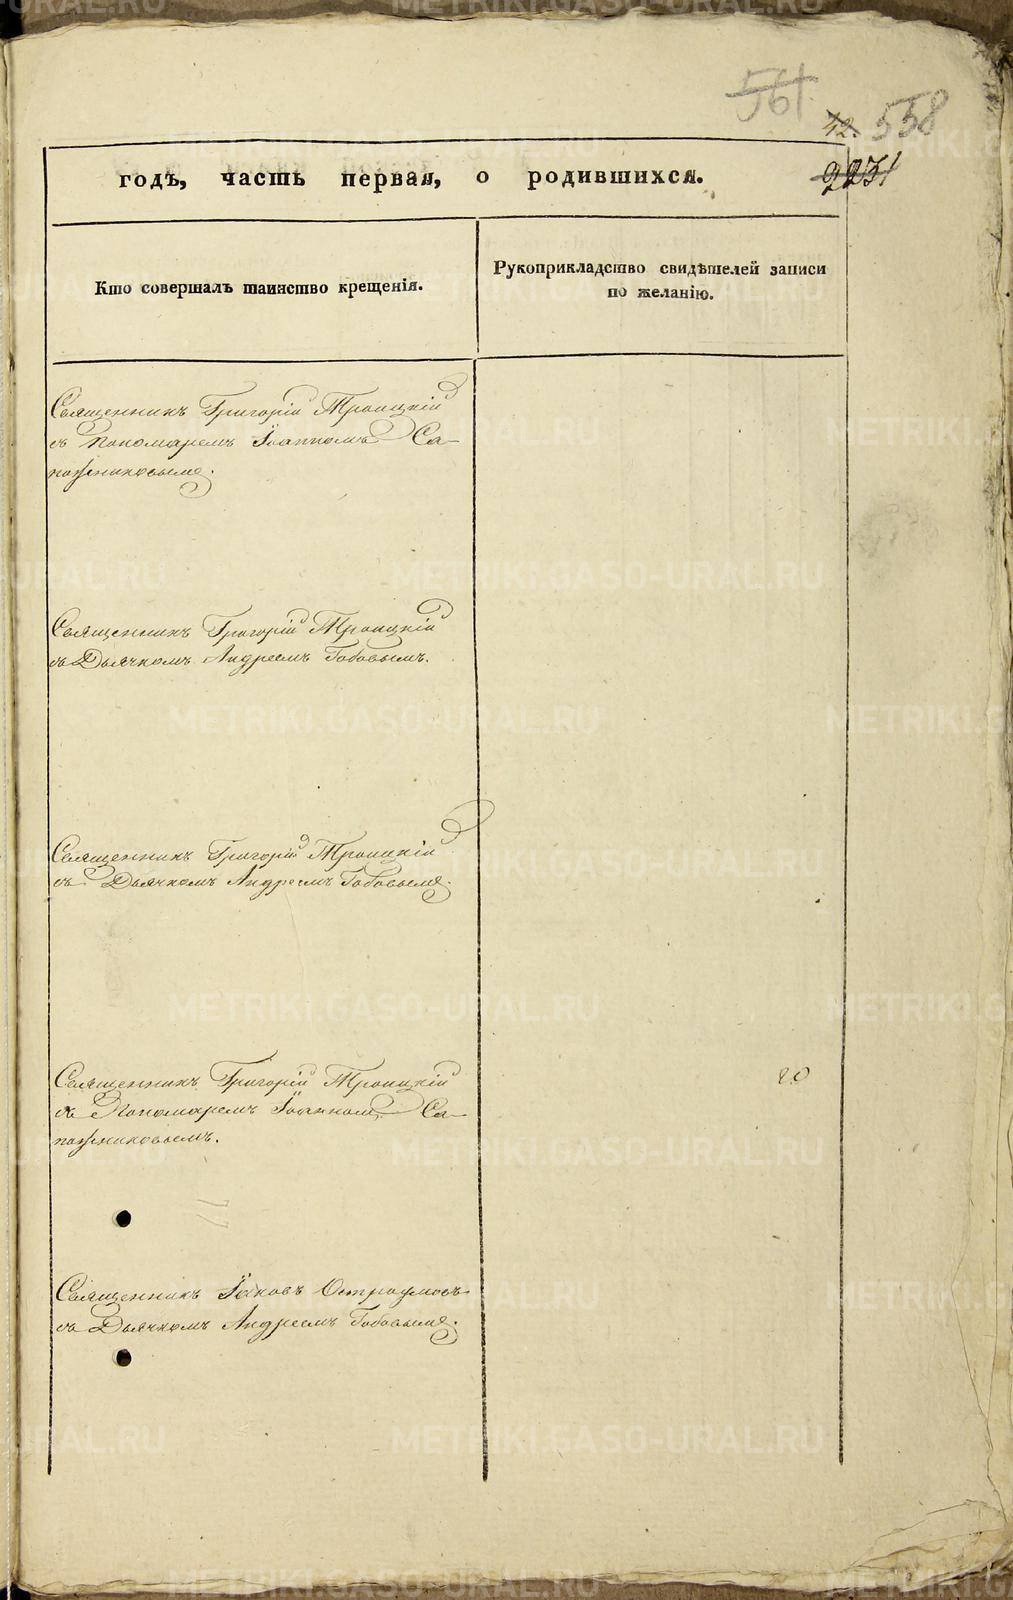 561.
42. 558
годъ, часть первая, о родившихся. 2231
Кто совершалъ таинство крещенія.
Рукоприкладство свидѣтелей записи
по желанію.
Священникъ Григорій Троицкій
съ Пономаремъ Іоанномъ Са-
пожниковымъ.
Священникъ Григорій Троицкій
съ Дьячкомъ Андреемъ Бобовымъ.
Священникъ Григорій Троицкій
съ Дьячкомъ Андреемъ Бобовымъ.
Священникъ Григорій Троицкій
съ Пономаремъ Іоанномъ Са-
пожниковымъ.
20
Священникъ Іаковъ Остроумовъ
съ Дьячкомъ Андреемъ Бобовымъ.
METRIKI.GASO-URAL.RU